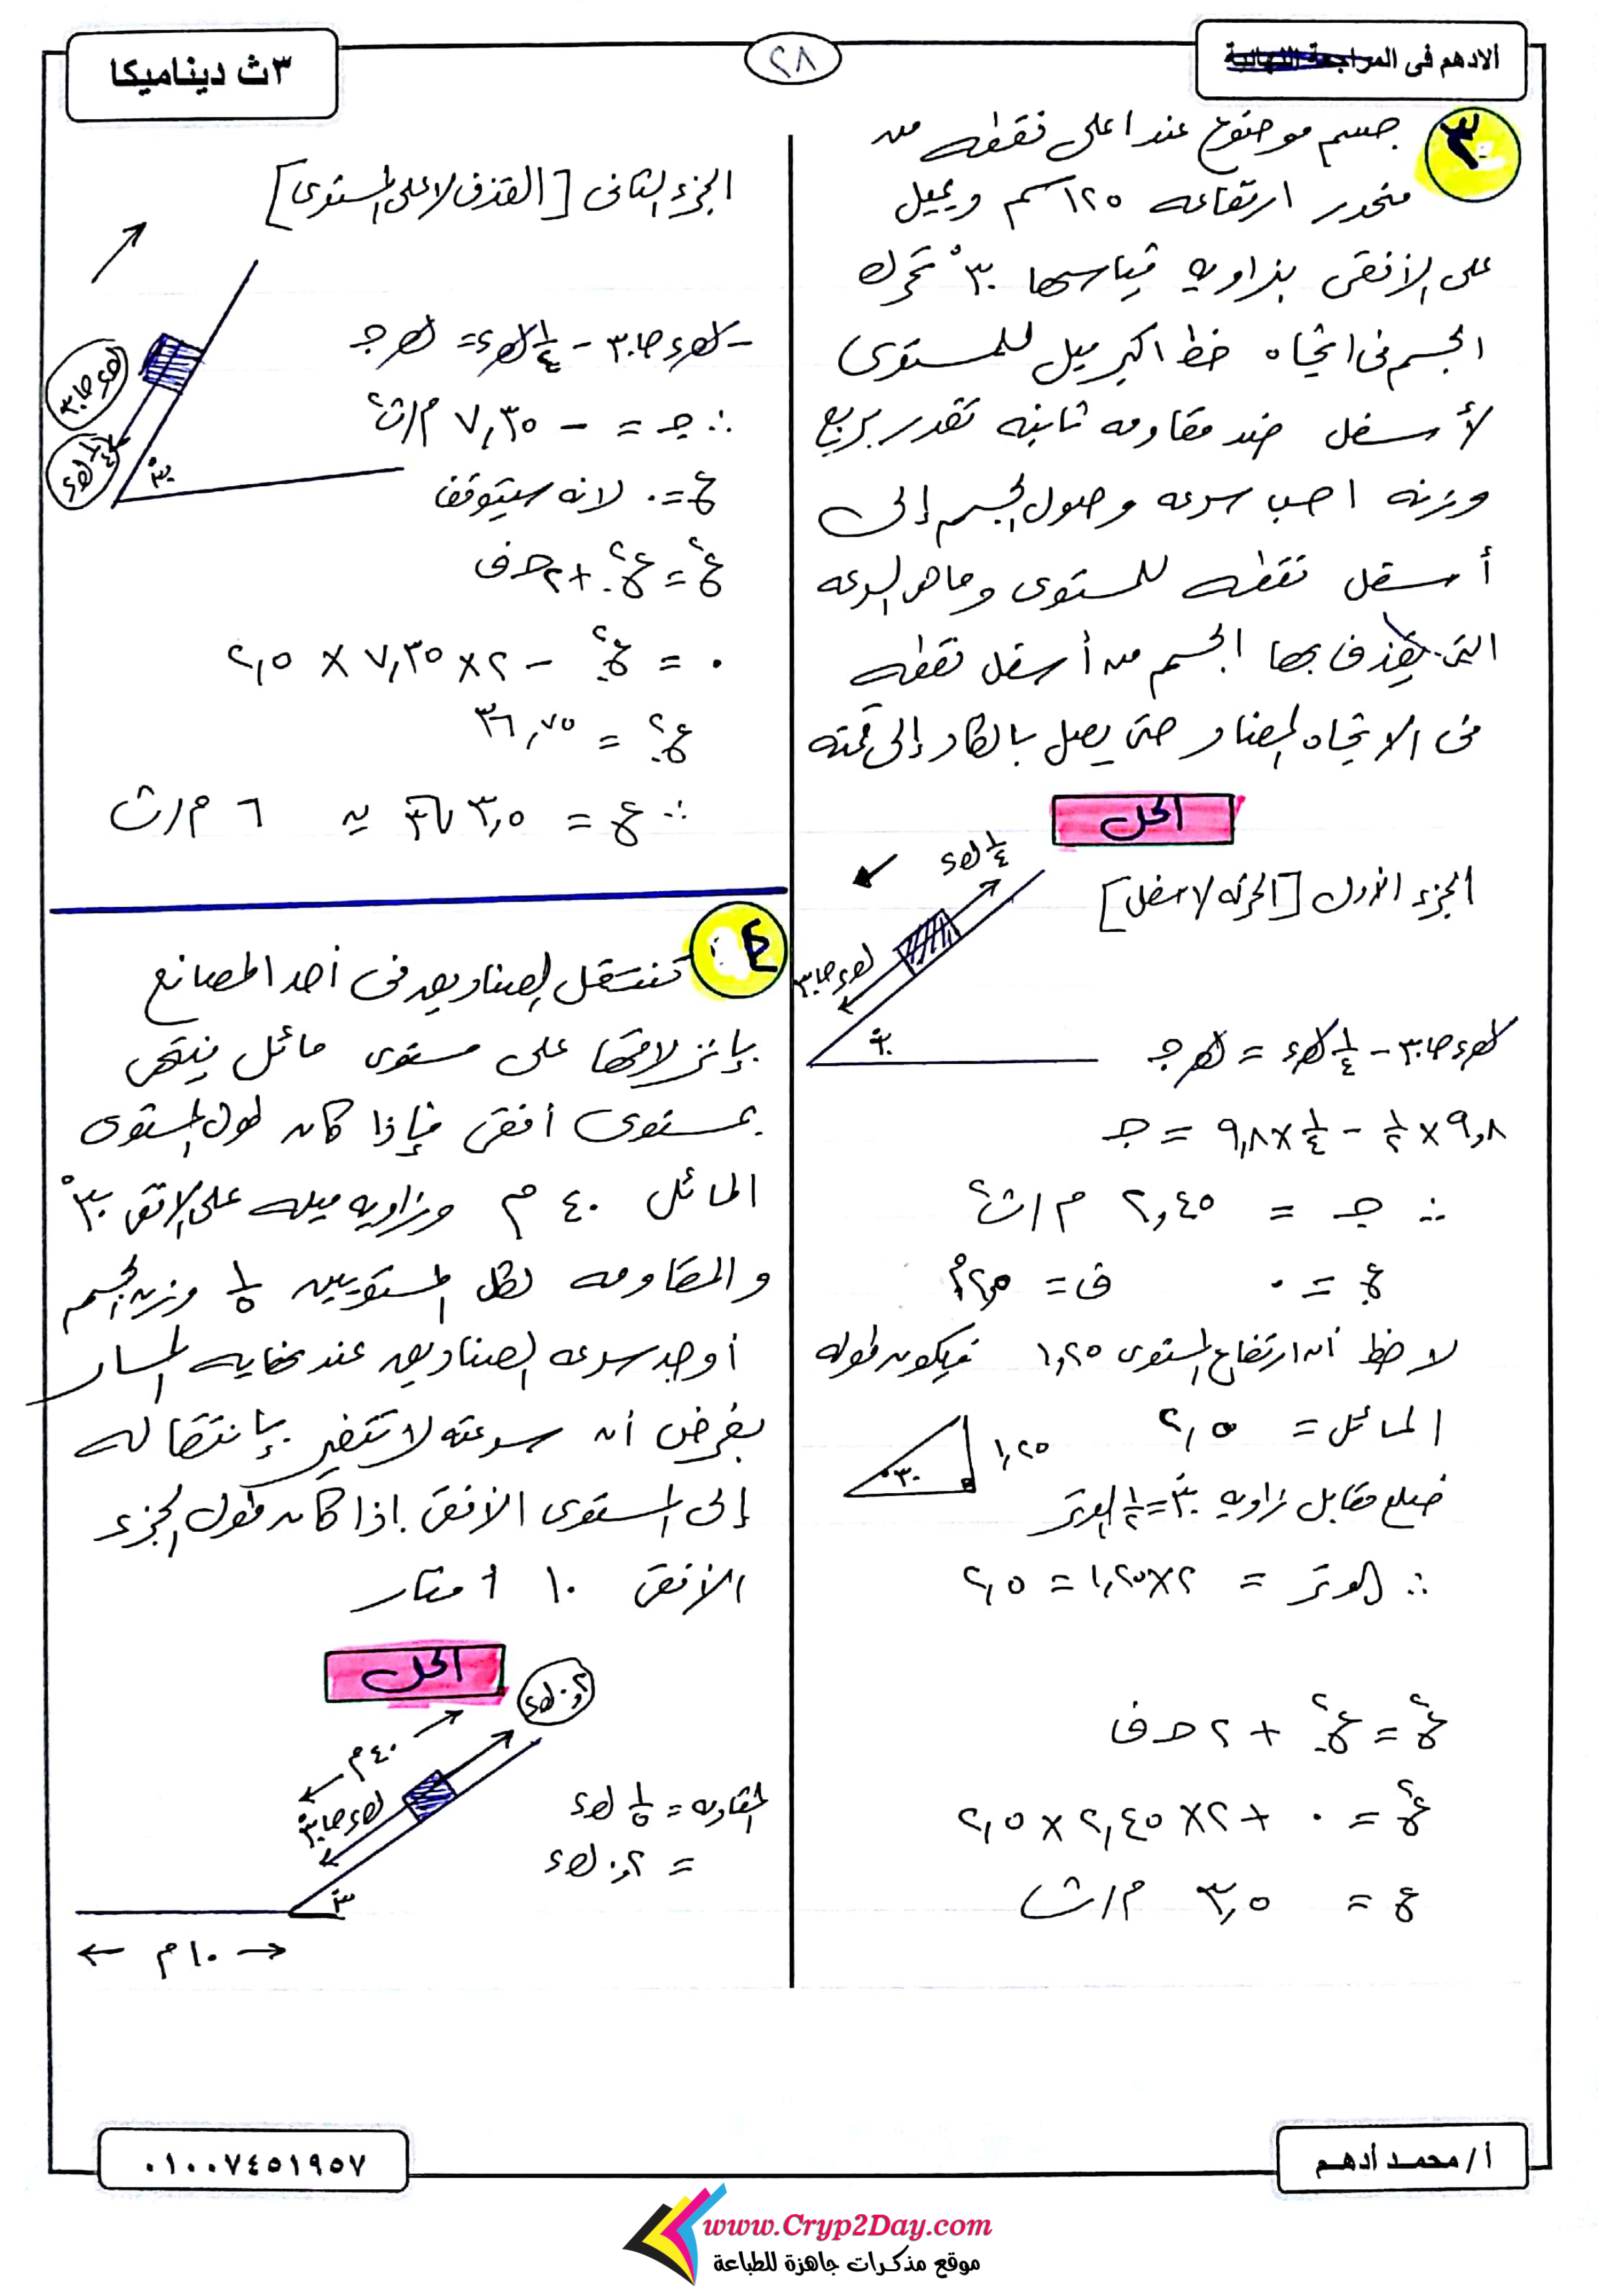 الادهم فى المراجعة النهائية
٢٨
٣ث ديناميكا
٣
جسم موضوع عند اعلى نقطه من
منحدر ارتفاعه ١٢٥ سم ويميل
على الافقى بزاويه قياسها ٣٠° تحرك
الجسم فى اتجاه خط اكبر ميل للمستوى
لأسفل ضد مقاومه ثابته تقدر بربع
وزنه احسب سرعه وصول الجسم إلى
أسفل نقطه للمستوى وما هى السرعه
التى يقذف بها الجسم من أسفل نقطه
فى الاتجاه المضاد حتى يصل بالكاد إلى قمته
الحل
الجزء الاول [الحركه لاسفل]
١/٤ ك ء
ك ء حا ٣٠
٣٠°
ك ء حا ٣٠ - ١/٤ ك ء = ك جـ
٩,٨ × ١/٢ - ١/٤ × ٩,٨ = جـ
∴ جـ = ٢,٤٥ م/ث٢
ع. = ٠ ف = ٢,٥ م
لاحظ أن ارتفاع المستوى ١,٢٥ فيكون طوله
المائل = ٢,٥
١,٢٥
٣٠°
ضلع مقابل زاويه ٣٠° = ١/٢ الوتر
∴ الوتر = ٢ × ١,٢٥ = ٢,٥
ع٢ = ع.٢ + ٢ حـ ف
ع٢ = ٠ + ٢ × ٢,٤٥ × ٢,٥
ع = ٣,٥ م/ث
الجزء الثانى [القذف لاعلى المستوى]
ك ء حا ٣٠
١/٤ ك ء
٣٠°
-ك ء حا ٣٠ - ١/٤ ك ء = ك جـ
∴ جـ = - ٧,٣٥ م/ث٢
ع = ٠ لانه سيتوقف
ع٢ = ع.٢ + ٢ حـ ف
٠ = ع.٢ - ٢ × ٧,٣٥ × ٢,٥
ع.٢ = ٣٦,٧٥
∴ ع. = ٣,٥ √٣ ≃ ٦ م/ث
٤
تنتقل الصناديق فى أحد المصانع
بإنزلاقها على مستوى مائل ينتهى
بمستوى أفقى فإذا كان طول المستوى
المائل ٤٠ م وزاويه ميله على الافقى ٣٠°
والمقاومه لكل المستويين ١/٥ وزن الجسم
أوجد سرعه الصناديق عند نهايه المسار
بفرض أن سرعته لا تتغير بإنتقاله
إلى المستوى الافقى إذا كان طول الجزء
الافقى ١٠ أمتار
الحل
٠,٢ ك ء
٤٠ م
ك ء حا ٣٠°
٣٠°
١٠ م
المقاومه = ١/٥ ك ء
= ٠,٢ ك ء
أ/ محمد أدهم
٠١٠٠٧٤٥١٩٥٧
www.Cryp2Day.com
موقع مذكرات جاهزة للطباعة